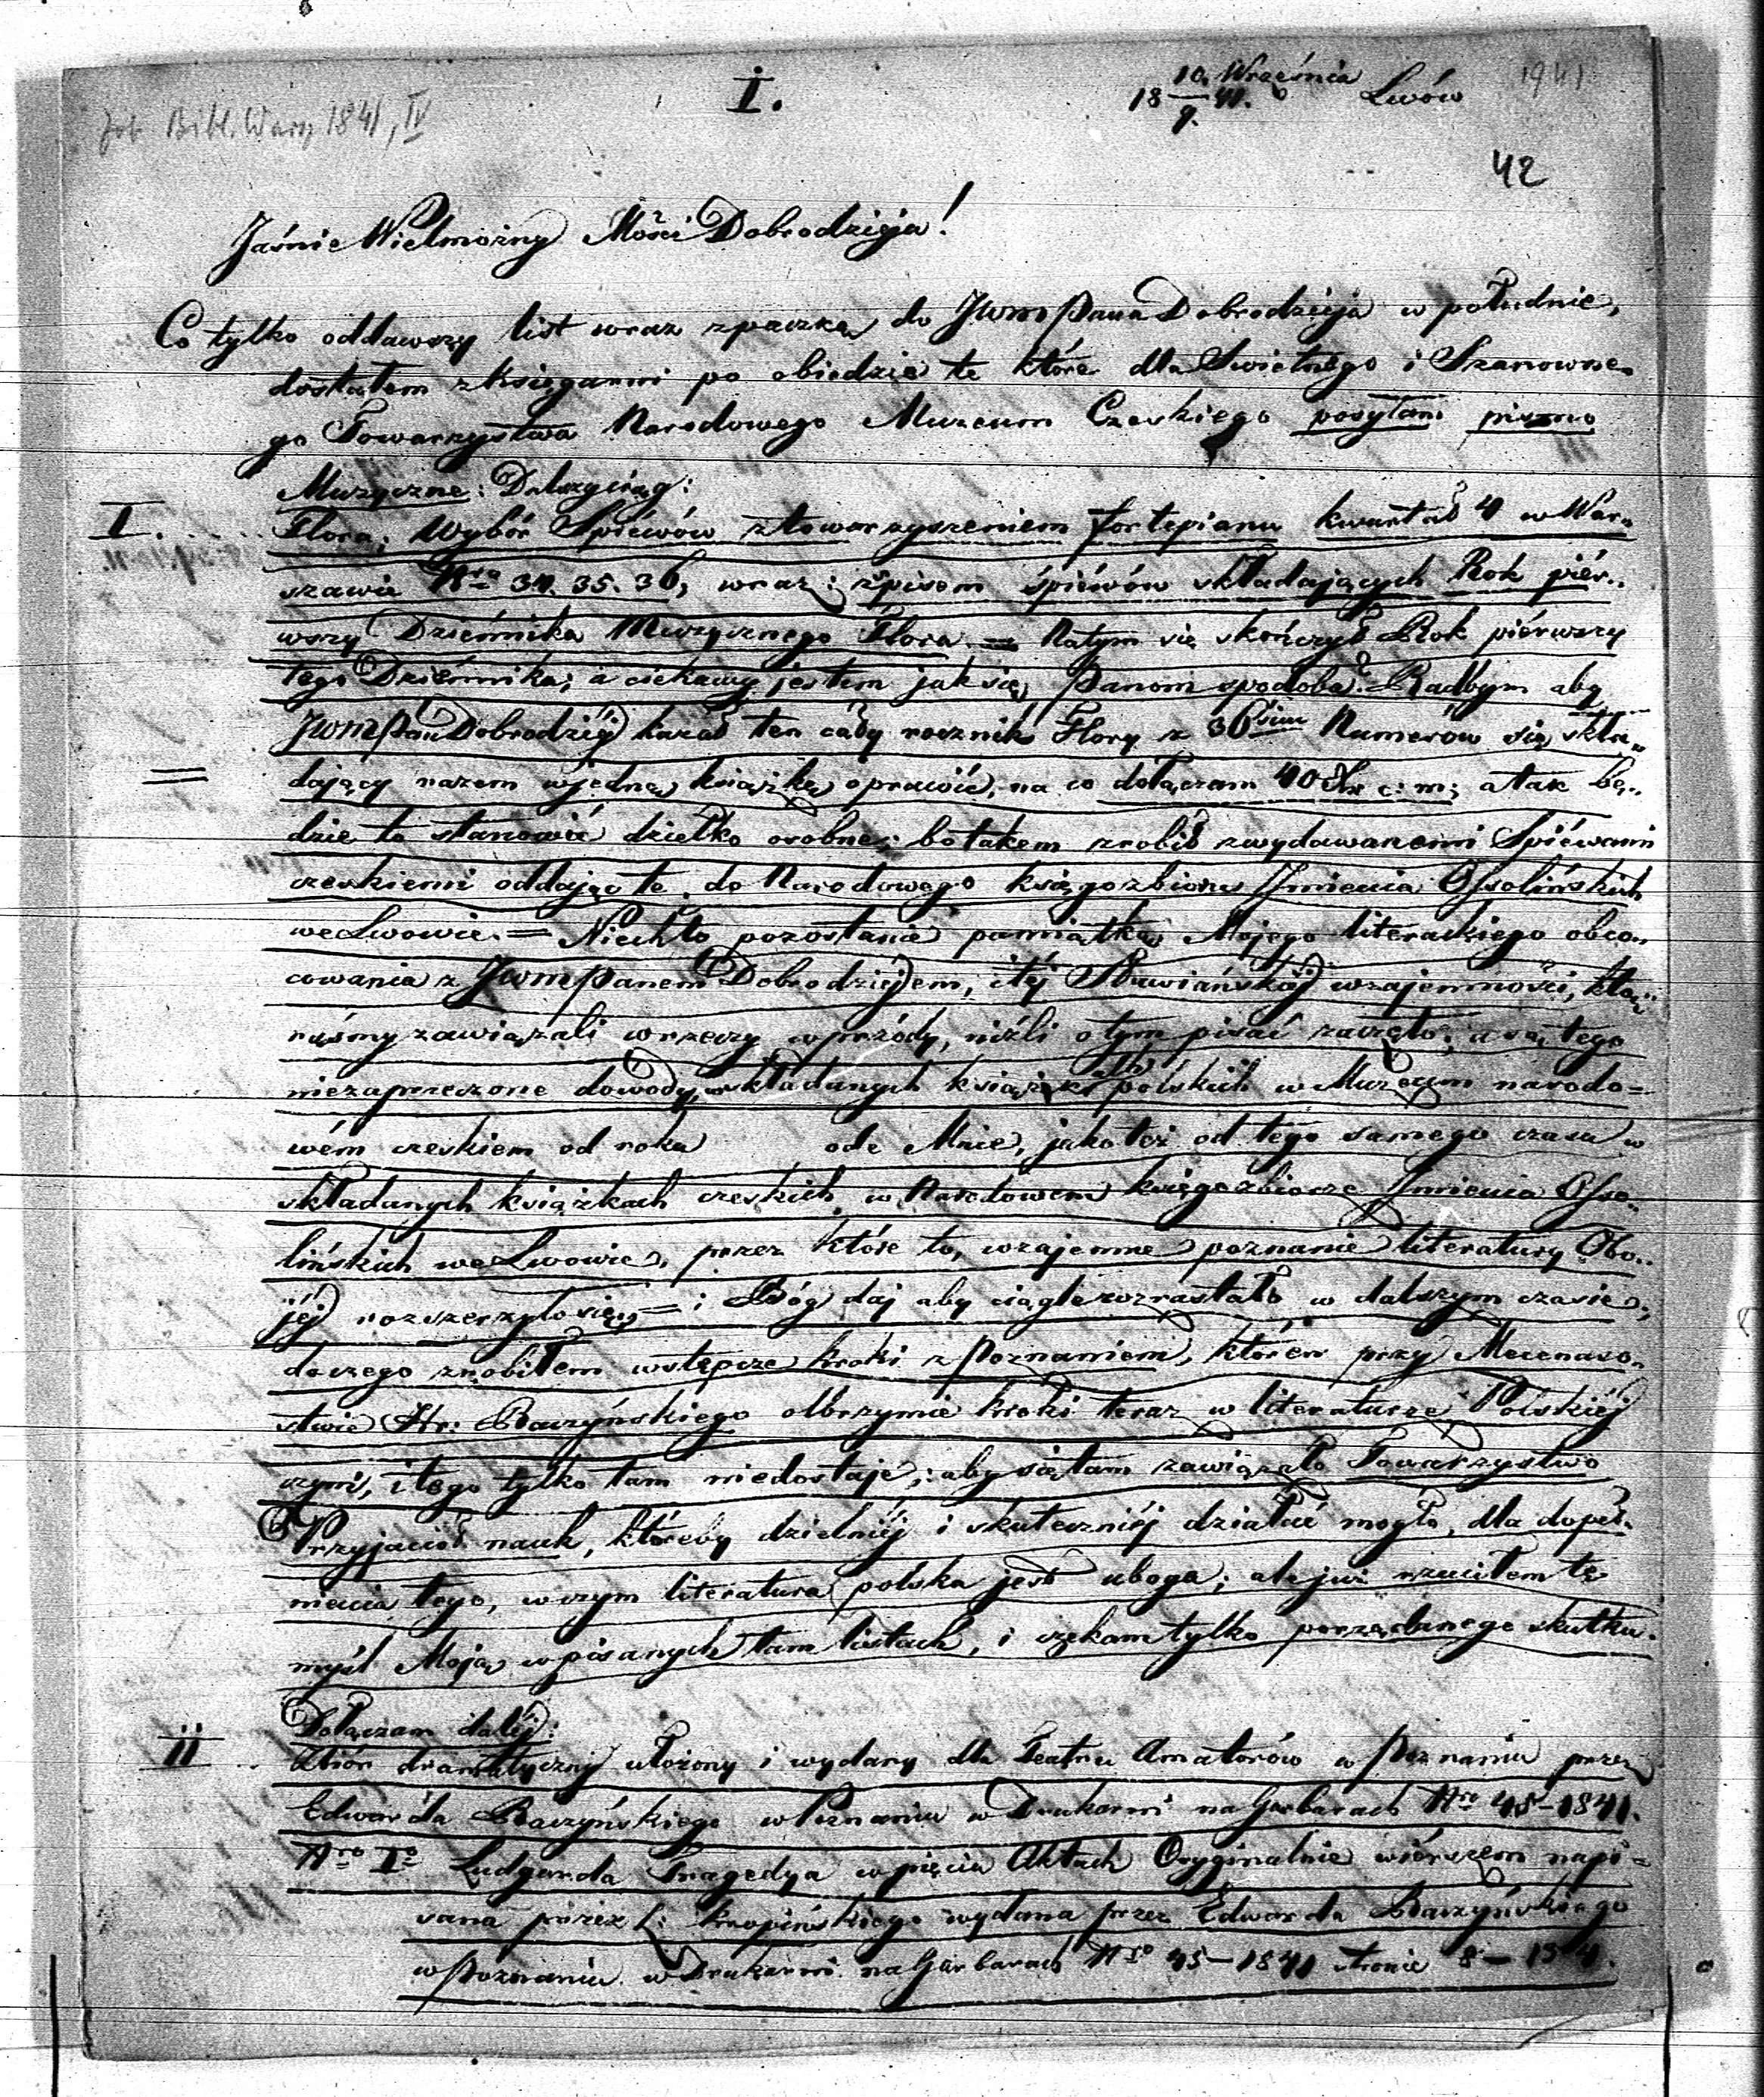 I.
10. Września
18 — 41. Lwów 1941
9.
Bibl. Warsz 1841, IV
42
Jaśnie Wielmożny Mości Dobrodzieja!
Co tylko oddawszy list wraz z paczką do JWM Pana Dobrodzieja w południe,
dostałem z księgarni po obiedzie te które dla Swietnego i Szanowne„
go Towarzystwa Narodowego Muzeum Czeskiego posyłam pismo
Muzyczne: Dalszy ciąg:
I. . . . Flora; Wybór Spiéwów z towarzyszeniem fortepianu kwartał 4 w War„
szawie Nro 34. 35. 36, wraz: z spisem śpiéwów składających Rok piér„
wszy Dziénnika Muzycznego Flora = Natym się skończył Rok piérwszy
tego Dziénnika; a ciekawy jestem jak się Panom spodoba. Radbym aby
JWM Pan Dobrodziéj kazał ten cały rocznik Flory z 36 Numerów się skła„
dający razem w jedną książkę oprawić, na co dołączam 40 Xr c: m; a tak bę„
dzie to stanowić dziełko osobne; bo takem zrobił z wydawanemi Spiéwami
czeskiemi oddając te do Narodowego księgozbioru Imienia Ossolińskich
we Lwowie. = Niech to pozostanie pamiątką Mojego literackiego obco„
cowania z JWM Panem Dobrodziéjem, i téj Sławiańskiéj wzajemności, któ„
rąśmy zawiązali w rzeczy wprzódy, niźli o tym pisać zaczęto; a są tego
niezaprzeczone dowody, w składanych książkach polskich w Muzeum narodo=
wém czeskiem od roku ode Mnie, jako też od tego samego czasu w
składanych książkach czeskich w Narodowem księgozbiorze Imienia Osso„
lińskich we Lwowie, przez które to, wzajemne poznanie literatury Obo„
jéj rozszerzyło się, = i Bóg daj aby ciągle wzrastało w dalszym czasie;
do czego zrobiłem wstępcze kroki z Poznaniem, któren przy Mecenaso„
stwie Hr: Raczyńskiego olbrzymie kroki teraz w literaturze Polskiéj
czyni, i tego tylko tam niedostaje; aby się tam zawiązało Towarzystwo
Przyjaciół nauk, któreby dzielniéj i skuteczniéj działać mogło, dla dopeł„
nienia tego, w czym literatura polska jest uboga; ale już rzuciłem tę
myśl Moją w pisanych tam listach, i czekam tylko porządanego skutku.
Dołączam daléj:
ii . Zbiór dramatyczny ułożony i wydany dla Teatru Amatorów w Poznaniu przez
Edwarda Raczyńskiego w Poznaniu w Drukarni na Garbarach Nro 45 – 1841.
Nro Io Ludgarda Tragedya w pięciu Aktach Oryginalnie wiérszem napi=
sana przez L: Kropińskiego wydana przez Edwarda Raczyńskiego
w Poznaniu w Drukarni na Garbarach Nro 45 – 1841 stronic 8 –